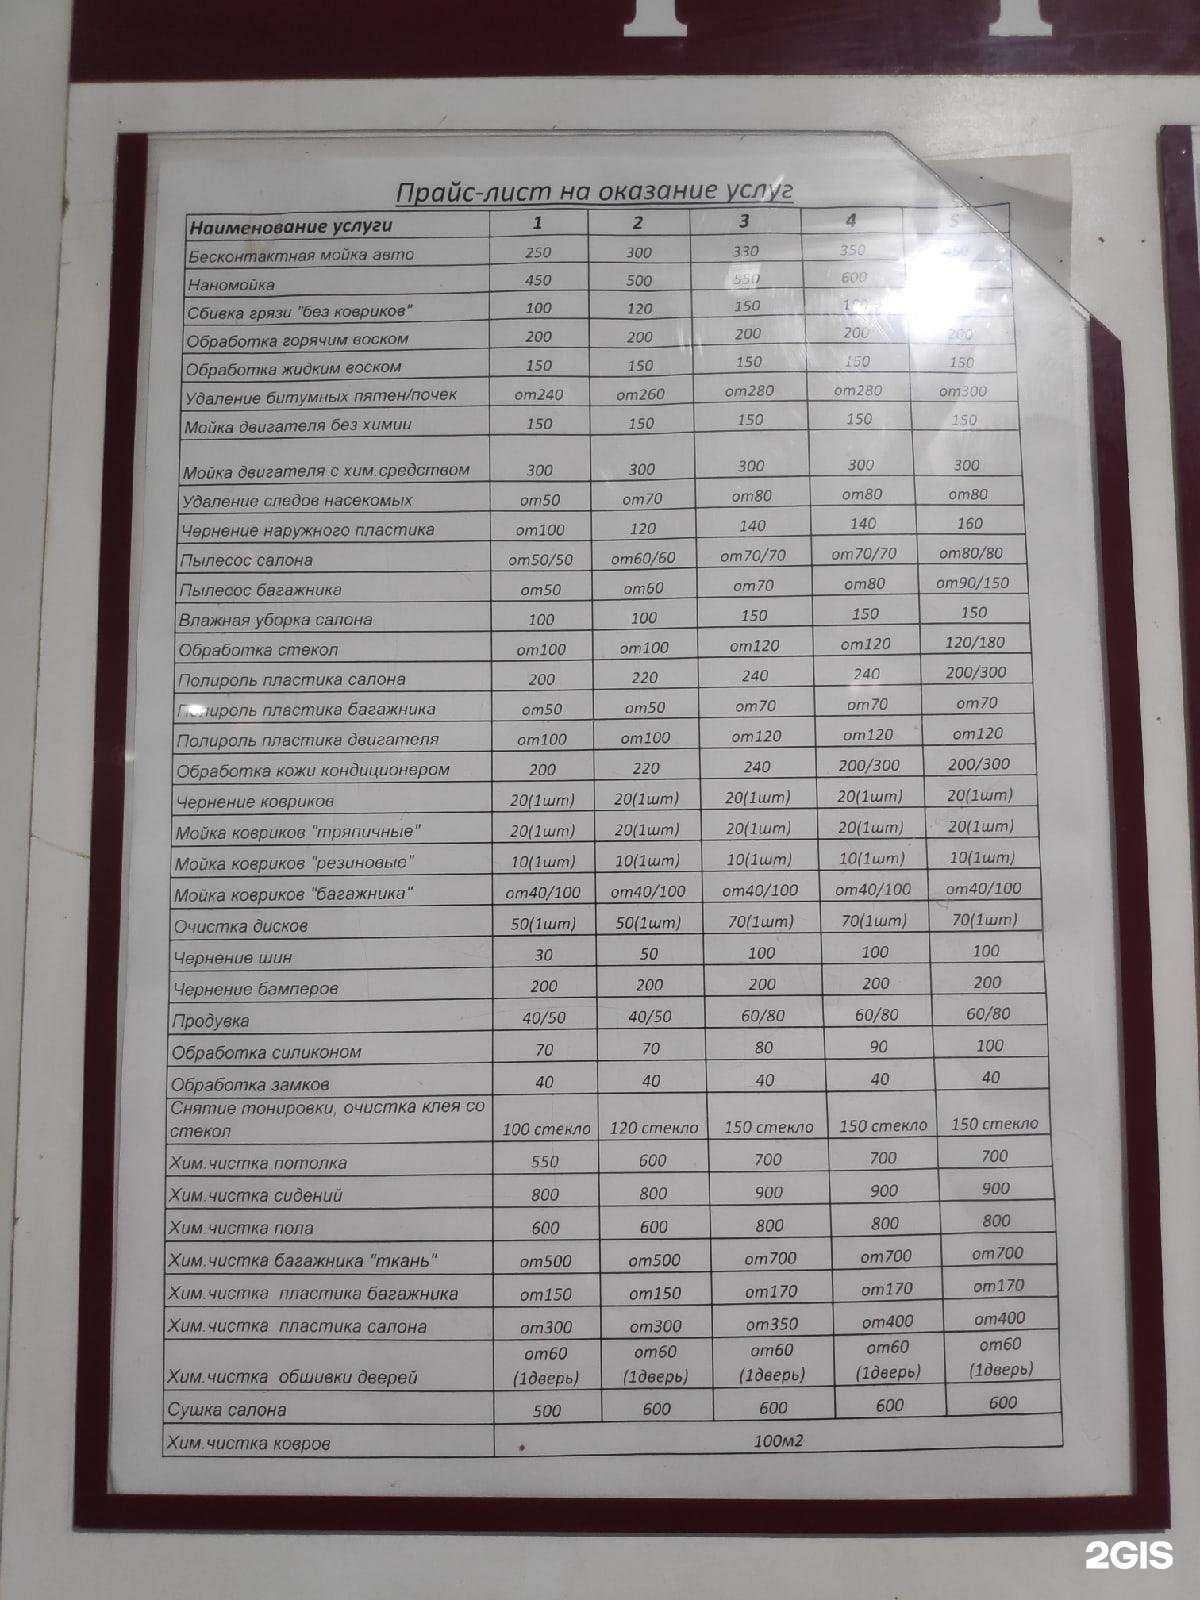 Прайс-лист на оказание услуг
Наименование услуги 1 2 3 4 5
Бесконтактная мойка авто 250 300 330 350 450
Наномойка 450 500 550 600
Сбивка грязи "без ковриков" 100 120 150
Обработка горячим воском 200 200 200 200 200
Обработка жидким воском 150 150 150 150 150
Удаление битумных пятен/почек от240 от260 от280 от280 от300
Мойка двигателя без химии 150 150 150 150 150
Мойка двигателя с хим.средством 300 300 300 300 300
Удаление следов насекомых от50 от70 от80 от80 от80
Чернение наружного пластика от100 120 140 140 160
Пылесос салона от50/50 от60/60 от70/70 от70/70 от80/80
Пылесос багажника от50 от60 от70 от80 от90/150
Влажная уборка салона 100 100 150 150 150
Обработка стекол от100 от100 от120 от120 120/180
Полироль пластика салона 200 220 240 240 200/300
Полироль пластика багажника от50 от50 от70 от70 от70
Полироль пластика двигателя от100 от100 от120 от120 от120
Обработка кожи кондиционером 200 220 240 200/300 200/300
Чернение ковриков 20(1шт) 20(1шт) 20(1шт) 20(1шт) 20(1шт)
Мойка ковриков "тряпичные" 20(1шт) 20(1шт) 20(1шт) 20(1шт) 20(1шт)
Мойка ковриков "резиновые" 10(1шт) 10(1шт) 10(1шт) 10(1шт) 10(1шт)
Мойка ковриков "багажника" от40/100 от40/100 от40/100 от40/100 от40/100
Очистка дисков 50(1шт) 50(1шт) 70(1шт) 70(1шт) 70(1шт)
Чернение шин 30 50 100 100 100
Чернение бамперов 200 200 200 200 200
Продувка 40/50 40/50 60/80 60/80 60/80
Обработка силиконом 70 70 80 90 100
Обработка замков 40 40 40 40 40
Снятие тонировки, очистка клея со
стекол 100 стекло 120 стекло 150 стекло 150 стекло 150 стекло
Хим.чистка потолка 550 600 700 700 700
Хим.чистка сидений 800 800 900 900 900
Хим.чистка пола 600 600 800 800 800
Хим.чистка багажника "ткань" от500 от500 от700 от700 от700
Хим.чистка пластика багажника от150 от150 от170 от170 от170
Хим.чистка пластика салона от300 от300 от350 от400 от400
от60 от60 от60 от60 от60
Хим.чистка обшивки дверей (1дверь) (1дверь) (1дверь) (1дверь) (1дверь)
Сушка салона 500 600 600 600 600
Хим.чистка ковров 100м2
2GIS